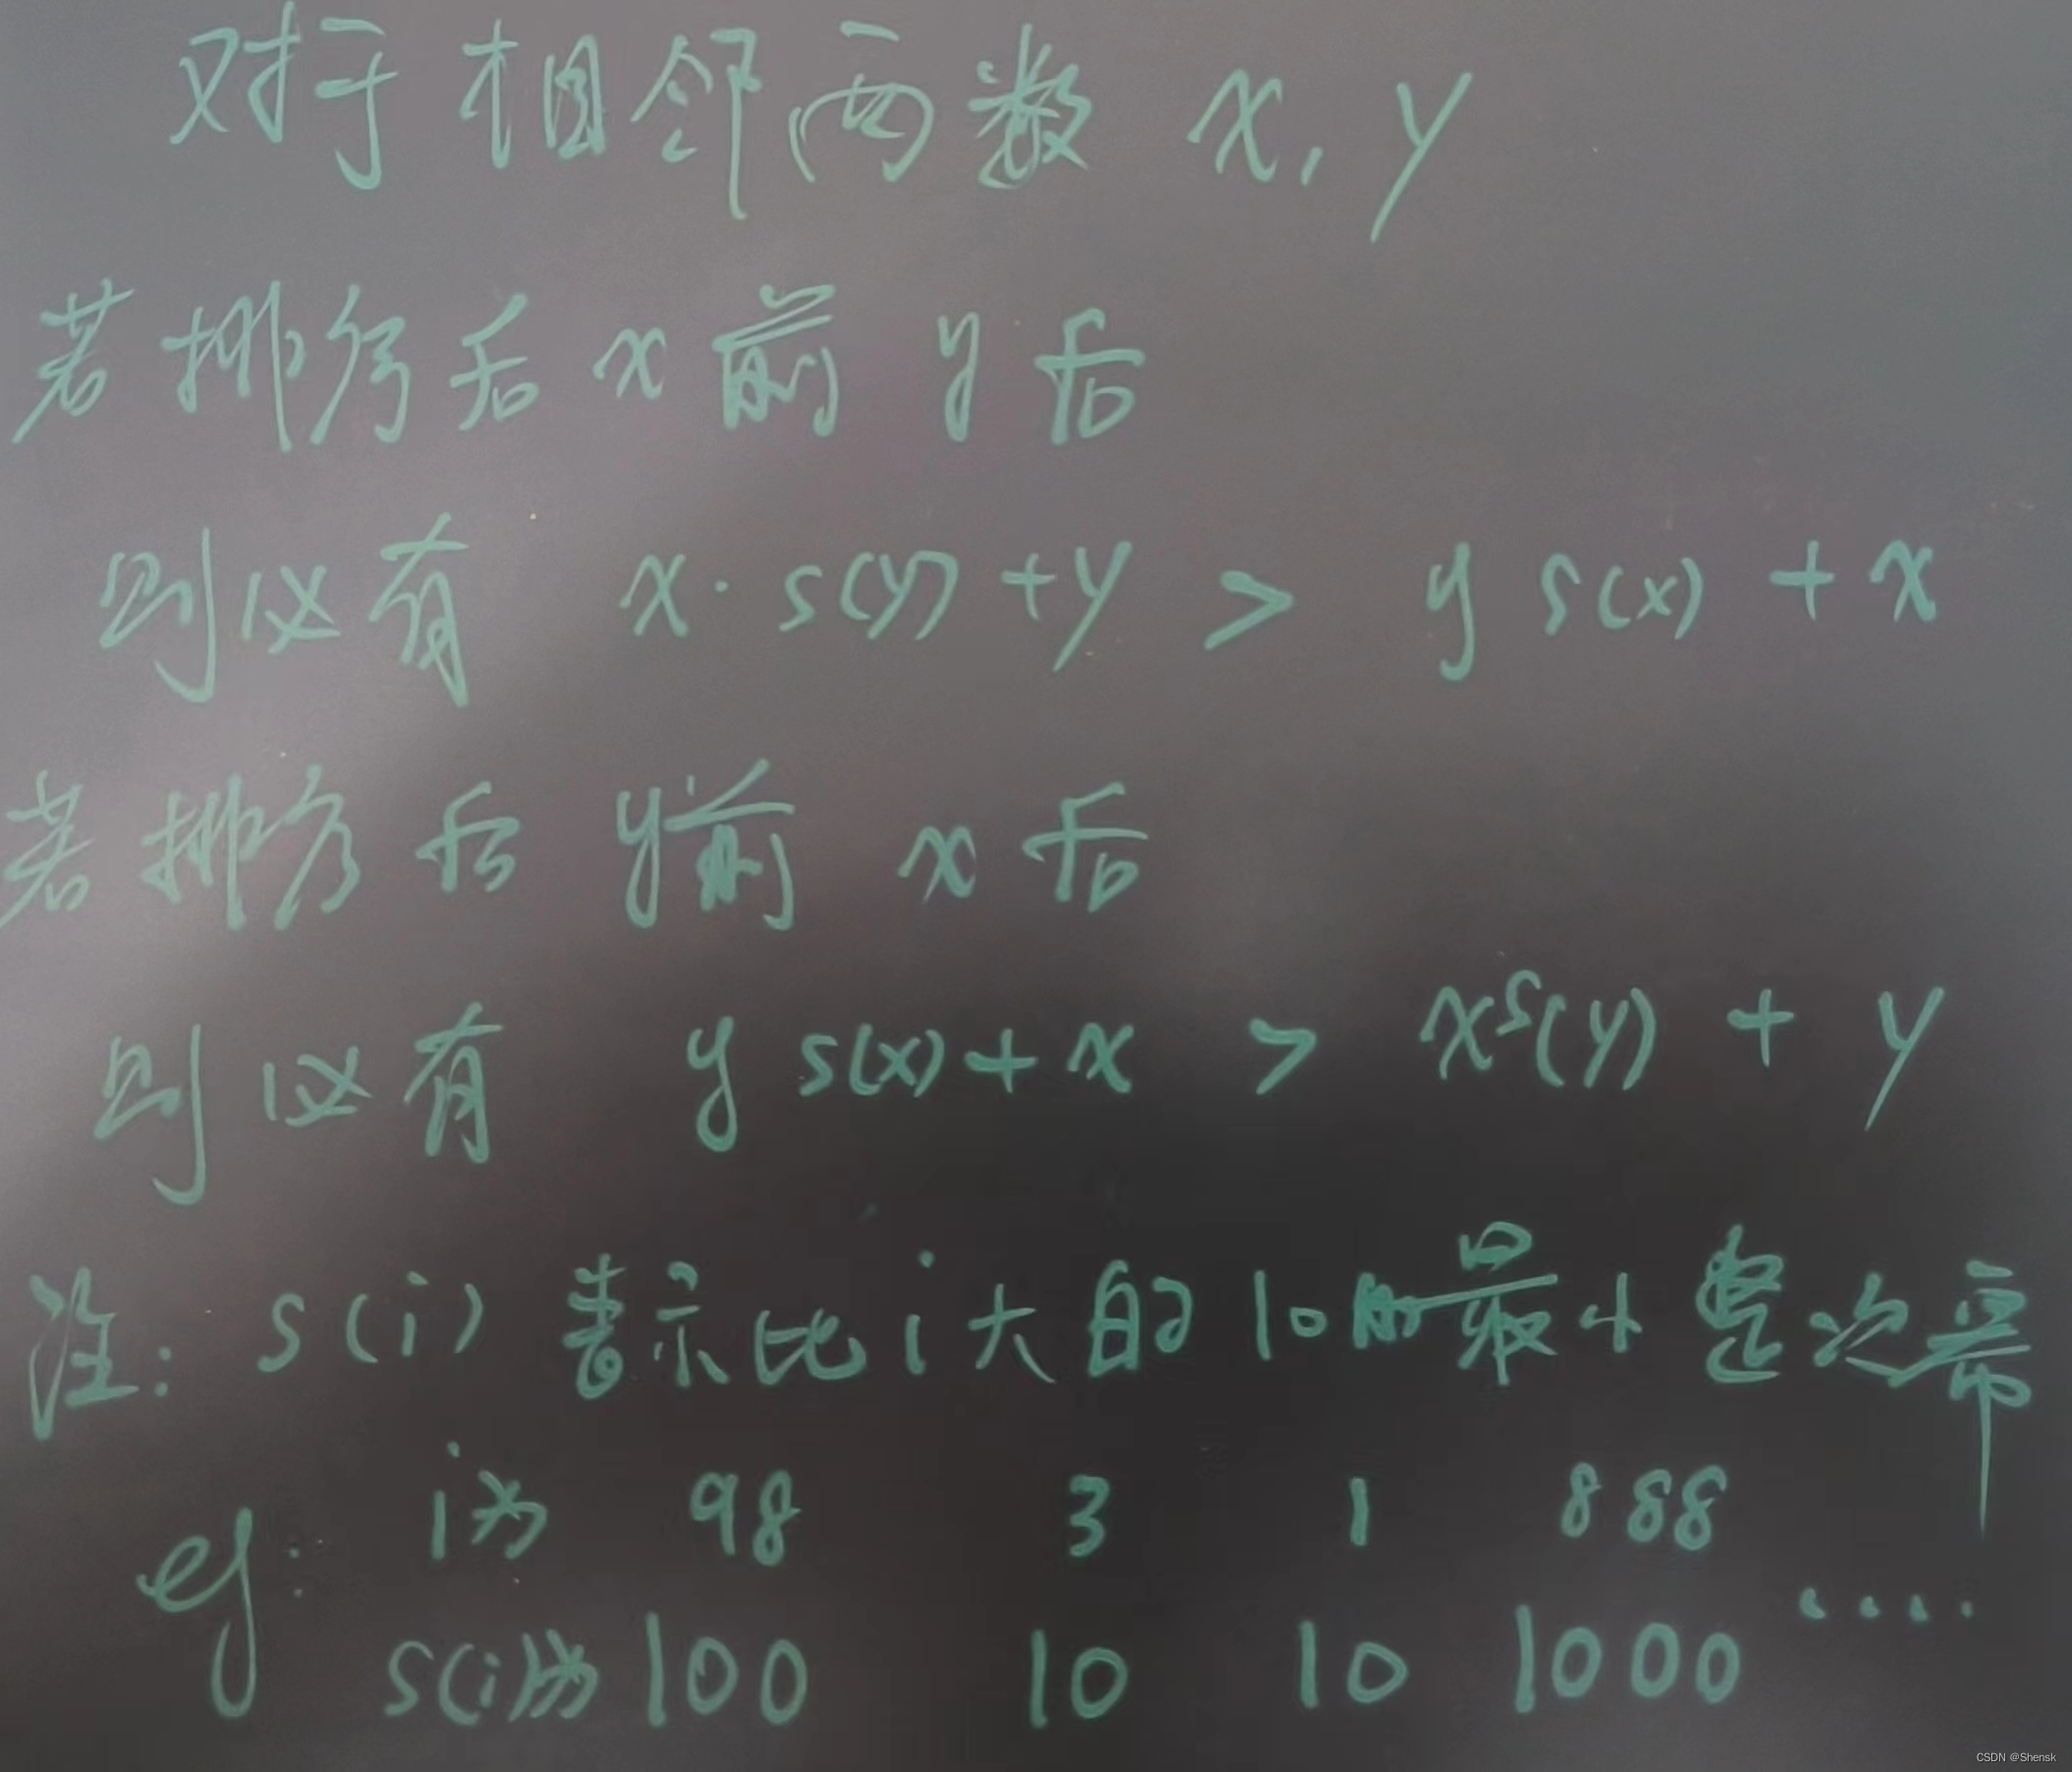 对于相邻两数 x, y
若排序后 x 前 y 后
则必有 x · s(y) + y > y s(x) + x
若排序后 y前 x 后
则必有 y s(x) + x > x s(y) + y
注: s(i) 表示比 i 大的 10 的最小整次幂
eg: i为 98 3 1 888
s(i)为 100 10 10 1000 ....
CSDN @Shensk